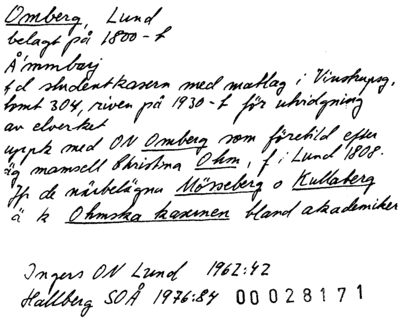 Omberg, Lund
belagt på 1800-t
Å'mmbarj
f d studentkasern med matlag i Vinstupsg,
tomt 304, riven på 1930-t för utvidgning
av elverket
uppk med ON Omberg som förebild efter
äg mamsell Christina Ohm, f i Lund 1808.
Jfr de närbelägna Mösseberg o Kullaberg
ä k Ohmska kasernen bland akademiker
Ingers ON Lund 1962:42
Hallberg SOÅ 1976:84 00028171